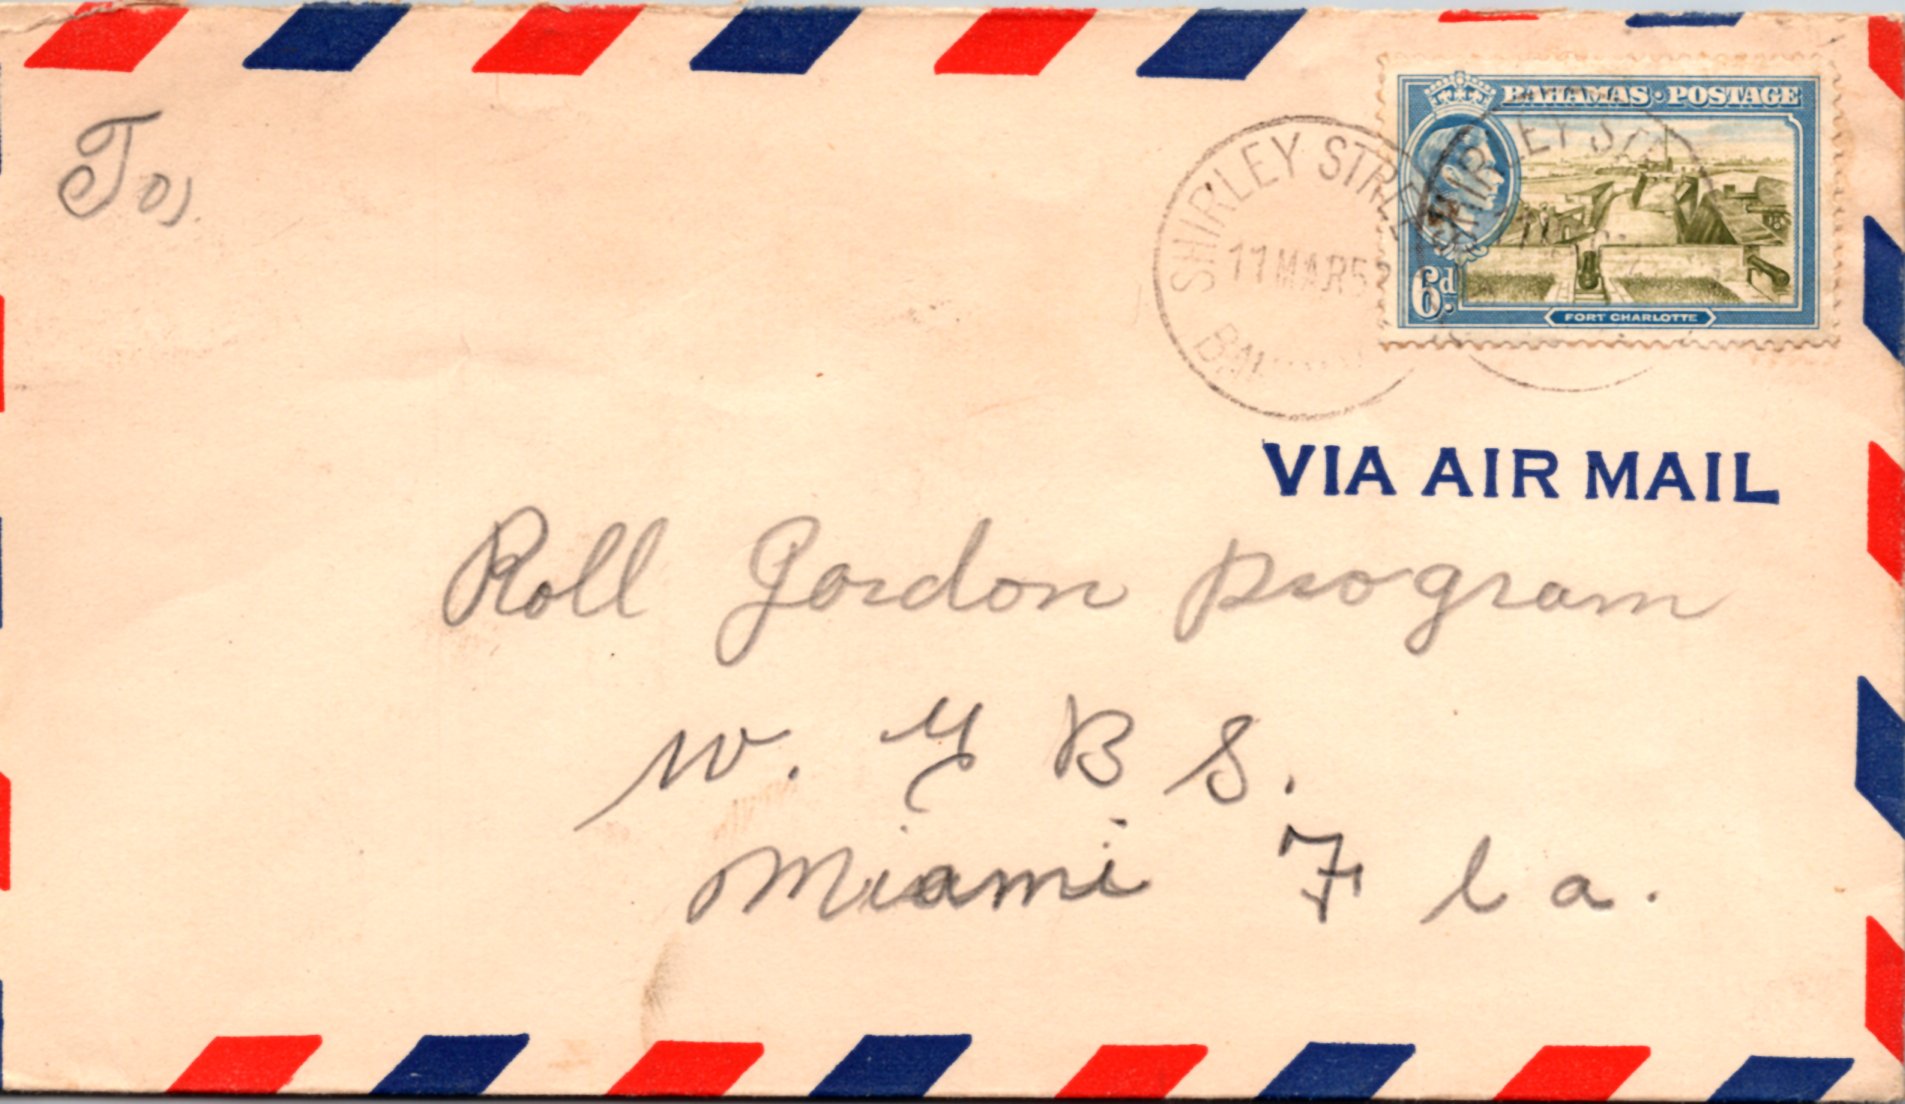 To,
BAHAMAS · POSTAGE
SHIRLEY STRE
SHIRLEY ST
11 MAR 52
6d.
FORT CHARLOTTE
VIA AIR MAIL
Roll Gordon program
W. G B S.
Miami F la.